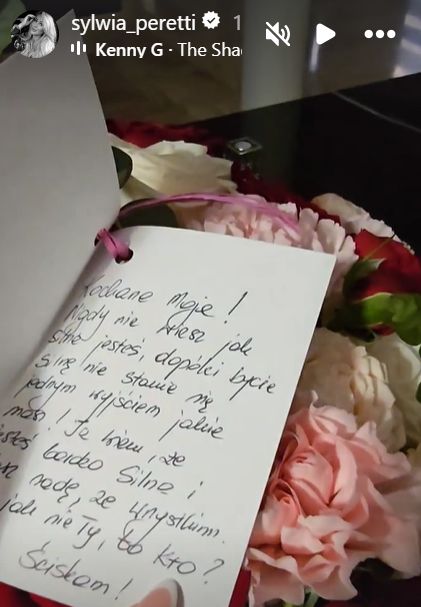 sylwia_peretti 1
Kenny G · The Sha
Kochane Moje!
Nigdy nie wiesz jak
silna jesteś, dopóki bycie
silną nie stanie się
jedynym wyjściem jakie
masz! Ja wiem, że
jesteś bardzo silna i
radę, ze wszystkim.
jak nie Ty, to kto?
Ściskam!